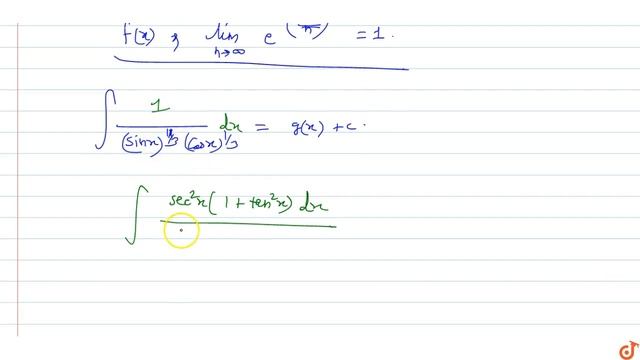 f(x) , lim n→∞ e^(—/n) = 1.
∫ 1 / (sinx)^11/3 (cosx)^1/3 dx = g(x) + c.
∫ sec²x (1 + tan²x) dx /